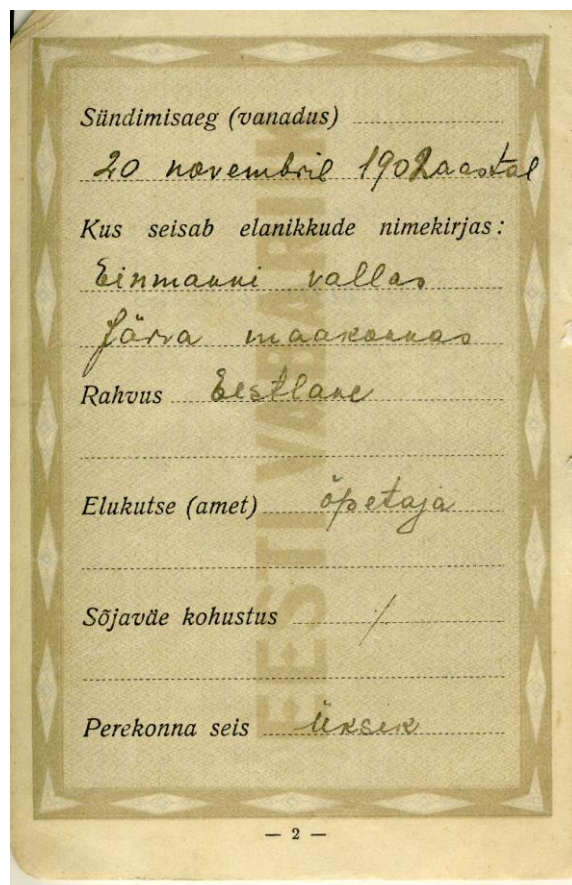 Sündimisaeg (vanadus)
20 novembril 1902 aastal
Kus seisab elanikkude nimekirjas:
Einmanni vallas
Järva maakonnas
Rahvus Eestlane
Elukutse (amet) õpetaja
Sõjaväe kohustus /
Perekonna seis üksik
EESTI VABARIIK
— 2 —